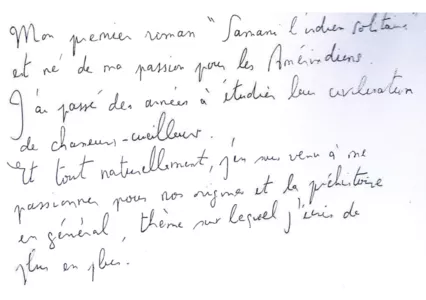 Mon premier roman "Samani l'indien solitaire"
est né de ma passion pour les Amérindiens.
J'ai passé des années à étudier leur civilisation
de chasseurs-cueilleurs.
Et tout naturellement, j'en suis venu à me
passionner pour nos origines et la préhistoire
en général, thème sur lequel j'écris de
plus en plus.